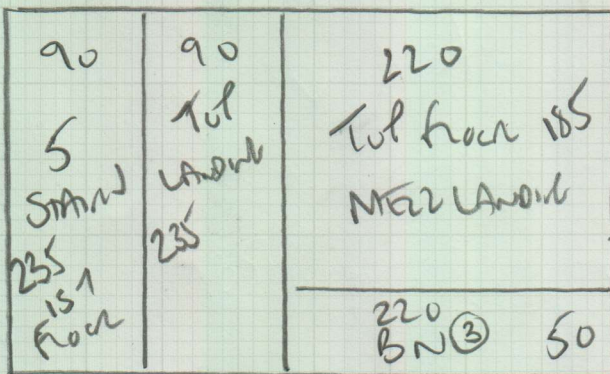 90
5
STAIRS
235
1ST
FLOOR
90
TOP
LANDING
235
220
TOP FLOOR 185
MEZZ LANDING
220
BN ③ 50